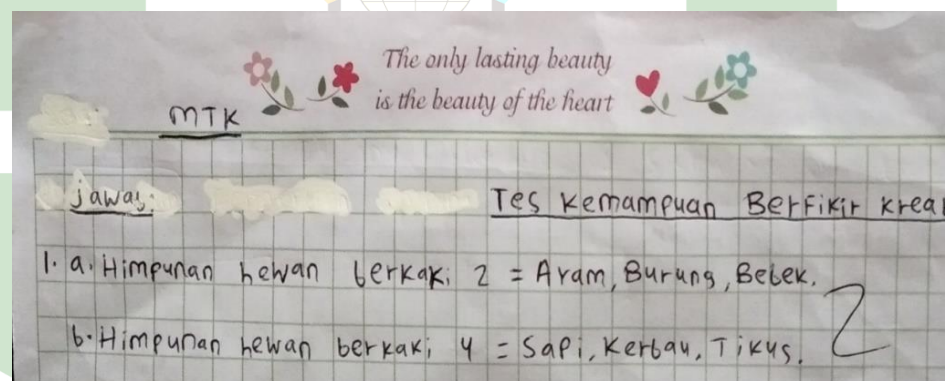 The only lasting beauty
is the beauty of the heart
MTK
Jawab:
Tes Kemampuan Berfikir Krea
1. a. Himpunan hewan berkaki 2 = Ayam, Burung, Bebek.
b. Himpunan hewan berkaki 4 = Sapi, Kerbau, Tikus.
2